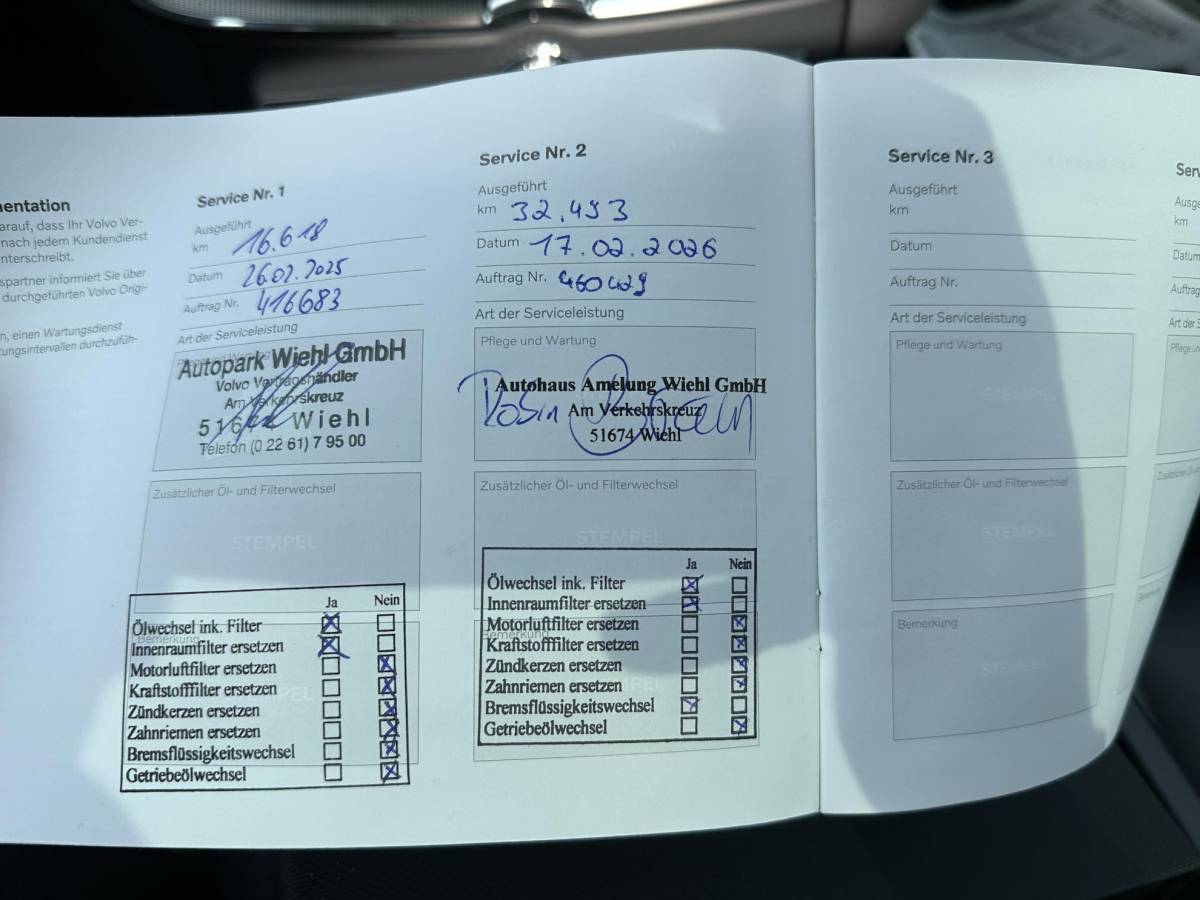 mentation
arauf, dass Ihr Volvo Ver-
nach jedem Kundendienst
nterschreibt.
spartner informiert Sie über
durchgeführten Volvo Origi-
n, einen Wartungsdienst
tungsintervallen durchzufüh-
Service Nr. 1
Ausgeführt
km 16.618
Datum 26.02.2025
Auftrag Nr. 416683
Art der Serviceleistung
Pflege und Wartung
Autopark Wiehl GmbH
Volvo Vertragshändler
Am Verkehrskreuz
51674 Wiehl
Telefon (0 22 61) 7 95 00
Zusätzlicher Öl- und Filterwechsel
STEMPEL
Ja Nein
Ölwechsel ink. Filter
Bemerkung
Innenraumfilter ersetzen
Motorluftfilter ersetzen
Kraftstofffilter ersetzen
Zündkerzen ersetzen
Zahnriemen ersetzen
Bremsflüssigkeitswechsel
Getriebeölwechsel
Service Nr. 2
Ausgeführt
km 32.493
Datum 17.02.2026
Auftrag Nr. 460429
Art der Serviceleistung
Pflege und Wartung
Autohaus Amelung Wiehl GmbH
Robin
Am Verkehrskreuz
51674 Wiehl
Zusätzlicher Öl- und Filterwechsel
STEMPEL
Ja Nein
Ölwechsel ink. Filter
Innenraumfilter ersetzen
Motorluftfilter ersetzen
Bemerkung
Kraftstofffilter ersetzen
Zündkerzen ersetzen
Zahnriemen ersetzen
Bremsflüssigkeitswechsel
Getriebeölwechsel
Service Nr. 3
Ausgeführt
km
Datum
Auftrag Nr.
Art der Serviceleistung
Pflege und Wartung
STEMPEL
Zusätzlicher Öl- und Filterwechsel
STEMPEL
Bemerkung
STEMPEL
Serv
Ausge
km
Datum
Auftrag
Art der S
Pflege un
Zusätzlic
Bemerk